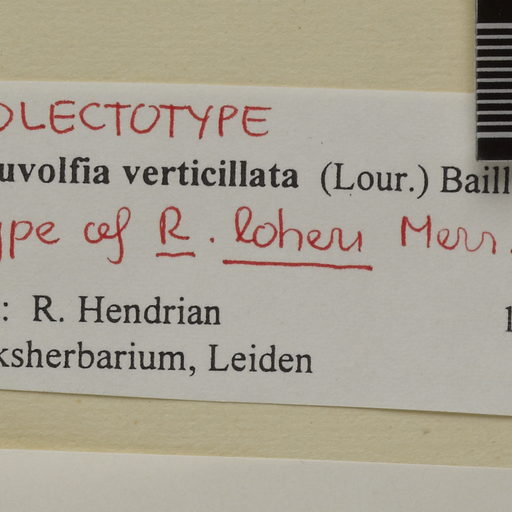 OLECTOTYPE
uvolfia verticillata (Lour.) Baill
ype of R. loheri Merr.
: R. Hendrian 1
ksherbarium, Leiden